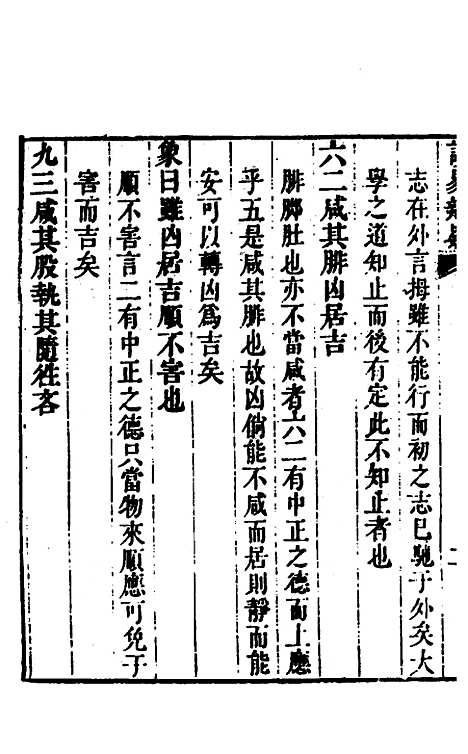 志在外言拇雖不能行而初之志已馳于外矣大
學之道知止而後有定此不知止者也
六二咸其腓凶居吉
腓脚肚也亦不當咸者六二有中正之德而上應
乎五是咸其腓也故凶倘能不咸而居則靜而能
安可以轉凶爲吉矣
象曰雖凶居吉順不害也
順不害言二有中正之德只當物來順應可免于
害而吉矣
九三咸其股執其隨徃吝